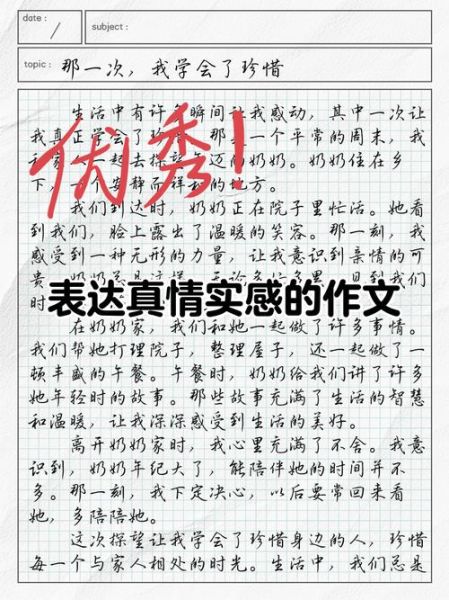 date :
subject :
topic : 那一次，我学会了珍惜
生活中有许多瞬间让我感动，其中一次让
我真正学会了珍 那 一个平常的周末，我
一起去探 迈的奶奶。奶奶住在乡
下， 个安静而祥和的地方。
优秀！
我们到达时，奶奶正在院子里忙活。她看
到我们，脸上露出了温暖的笑容。那一刻，我
感受到一种无形的力量，让我意识到亲情的可
贵。 见到我们
时
表达真情实感的作文
在奶奶家，我们和她一起做了许多事情。
我们帮她打理院子，整理屋子，还一起做了一
顿丰盛的午餐。午餐时，奶奶给我们讲了许多
她年轻时的故事。那些故事充满了生活的智慧
和温暖，让我深深感受到生活的美好。
离开奶奶家时，我心里充满了不舍。我意
识到，奶奶年纪大了，能陪伴她的时间并不
多。那一刻，我下定决心，以后要常回来看
她，多陪陪她。
这次探望让我学会了珍惜身边的人，珍惜
每一个与家人相处的时光。生活中，我们总是